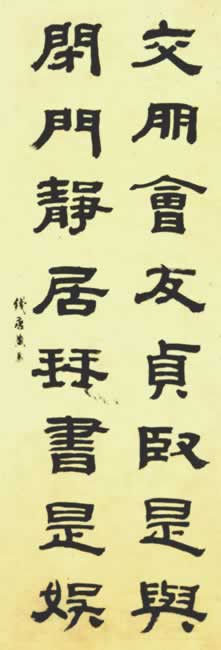 交朋會友貞臤是與
閉門靜居琴書是娛
錢唐黃易